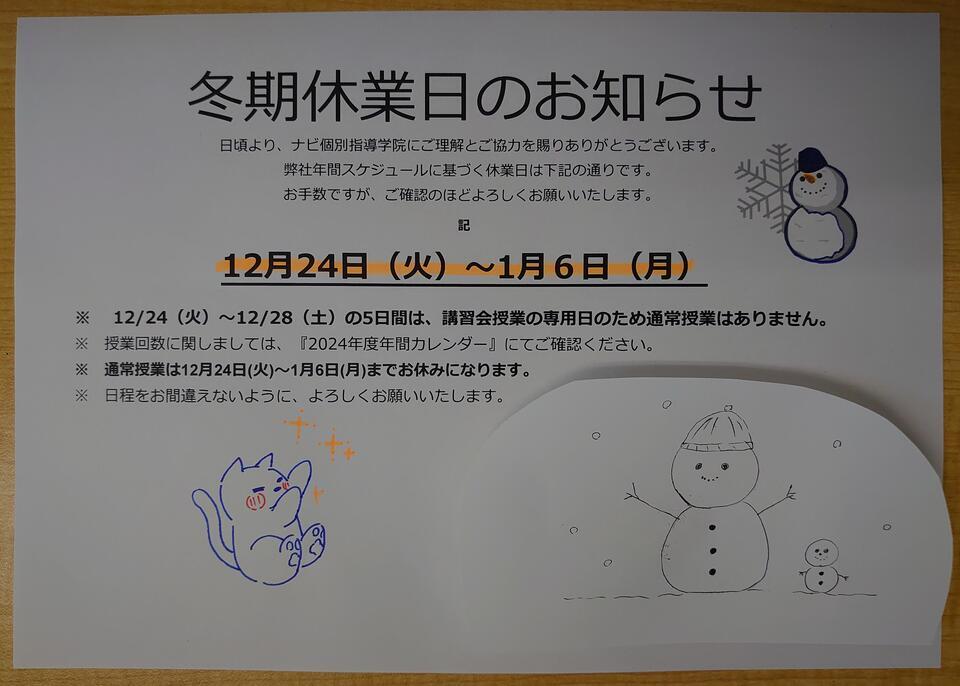 冬期休業日のお知らせ
日頃より、ナビ個別指導学院にご理解とご協力を賜りありがとうございます。
弊社年間スケジュールに基づく休業日は下記の通りです。
お手数ですが、ご確認のほどよろしくお願いいたします。
記
12月24日（火）～1月６日（月）
※ 12/24（火）～12/28（土）の5日間は、講習会授業の専用日のため通常授業はありません。
※ 授業回数に関しましては、『2024年度年間カレンダー』にてご確認ください。
※ 通常授業は12月24日(火)～1月6日(月)までお休みになります。
※ 日程をお間違えないように、よろしくお願いいたします。